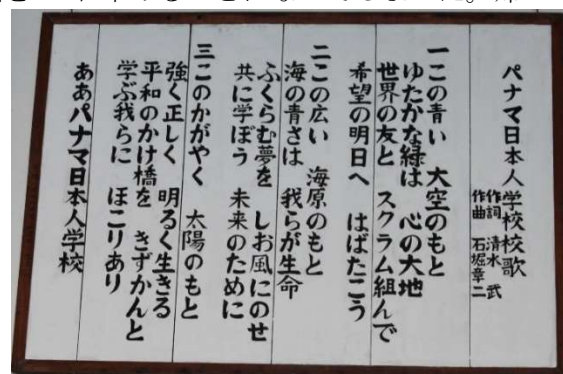 パナマ日本人学校校歌
作詞 清水 武
作曲 石堀章二
一この青い 大空のもと
ゆたかな緑は 心の大地
世界の友と スクラム組んで
希望の明日へ はばたこう
二この広い 海原のもと
海の青さは 我らが生命
ふくらむ夢を しお風にのせ
共に学ぼう 未来のために
三このかがやく 太陽のもと
強く正しく 明るく生きる
平和のかけ橋を きずかんと
学ぶ我らに ほこりあり
ああパナマ日本人学校